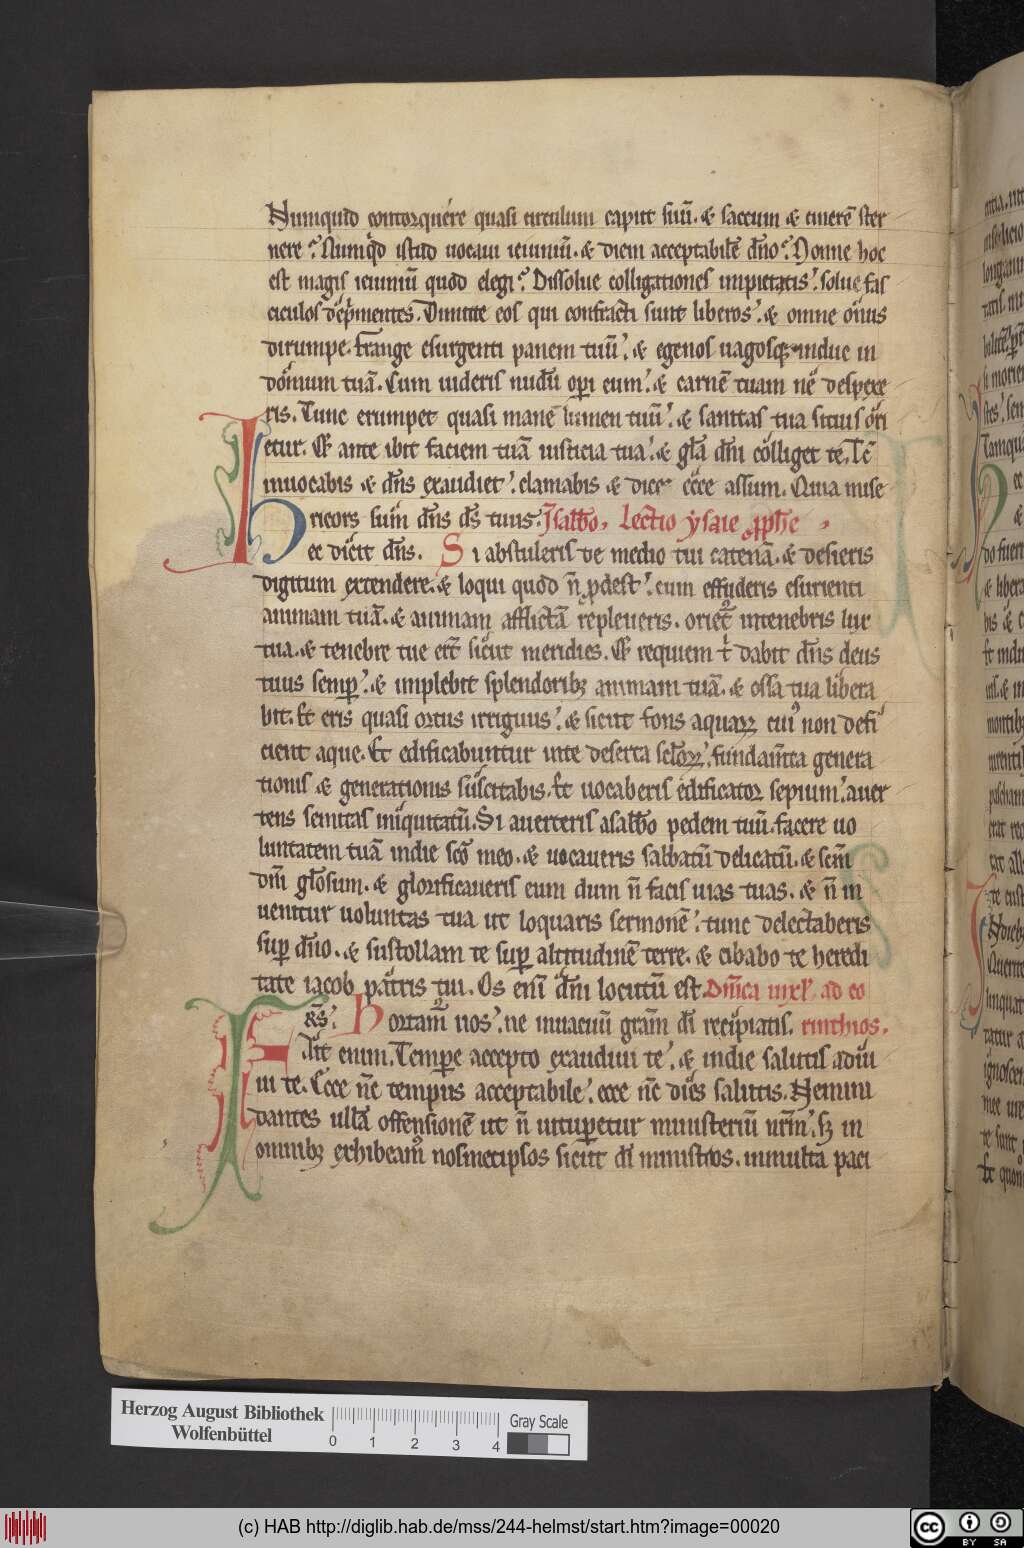 Numquid contorquere quasi circulum caput suū. & saccum & cinerē ster
nere? Numqͥd istud uocaui ieiuniū. & diem acceptabilē dn̄o? Nonne hoc
est magis ieiuniū quod elegi? Dissolue colligationes impietatis. solue fas
ciculos dep̄mentes. Dimitte eos qui confracti sunt liberos. & omne onus
dirumpe. frange esurienti panem tuū. & egenos uagosq; indue in
domum tuā. Cum uideris nudū op̄i eum. & carnē tuam ne despexe
ris. Tunc erumpet quasi mane lumen tuū. & sanitas tua citius ori
etur. Et ante ibit faciem tuā iusticia tua. & gl̄a dn̄i colliget te. Tc̄
inuocabis & dn̄s exaudiet. clamabis & dicet ecce assum. Quia mise
ricors sum dn̄s ds̄ tuus. Jsabb̄o. Lectio ysaie pph̄e
Hec dicit dn̄s. Si abstuleris de medio tui catenā. & desieris
digitum extendere. & loqui quod n̄ pdest. cum effuderis esurienti
animam tuā. & animam afflictā repleueris. orietᷣ intenebris lux
tua. & tenebre tue er̄t sicut meridies. Et requiem t̄ dabit dn̄s deus
tuus semp̄. & implebit splendoribꝫ animam tuā. & ossa tua libera
bit. et eris quasi ortus irriguus. & sicut fons aquarꝝ cuiꝰ non defi
cient aque. Et edificabuntur inte deserta sc̄lorꝝ. fundam̄ta genera
tionis & generationis suscitabis. Et uocaberis edificator sepium. auer
tens semitas iniquitatū. Si auerteris asabb̄o pedem tuū. facere uo
luntatem tuā indie sc̄o meo. & uocaueris sabbatū delicatū. & sc̄m
dn̄i gl̄osum. & glorificaueris eum dum n̄ facis uias tuas. & n̄ in
uenitur uoluntas tua ut loquaris sermonē. tunc delectaberis
sup̄ dn̄o. & sustollam te sup̄ altitudinē terre. & cibabo te heredi
tate iacob patris tui. Os enī dn̄i locutū est. Dn̄ica in xl. ad co
Frs̄. Hortamᷣ uos. ne inuacuū gram̄ dī recipiatis. rinthios.
Ait enim. Tempe accepto exaudiui te. & indie salutis adiuui
te. Ecce nc̄ tempus acceptabile. ecce nc̄ dies salutis. Nemini
dantes ullā offensionē ut n̄ uitup̄etur ministeriū nrm̄. sꝫ in
omnibꝫ exhibeamꝰ nosmetipsos sicut dī ministros. inmulta paci
Herzog August Bibliothek
Wolfenbüttel
0 1 2 3 4
Gray Scale
(c) HAB http://diglib.hab.de/mss/244-helmst/start.htm?image=00020
cc BY SA